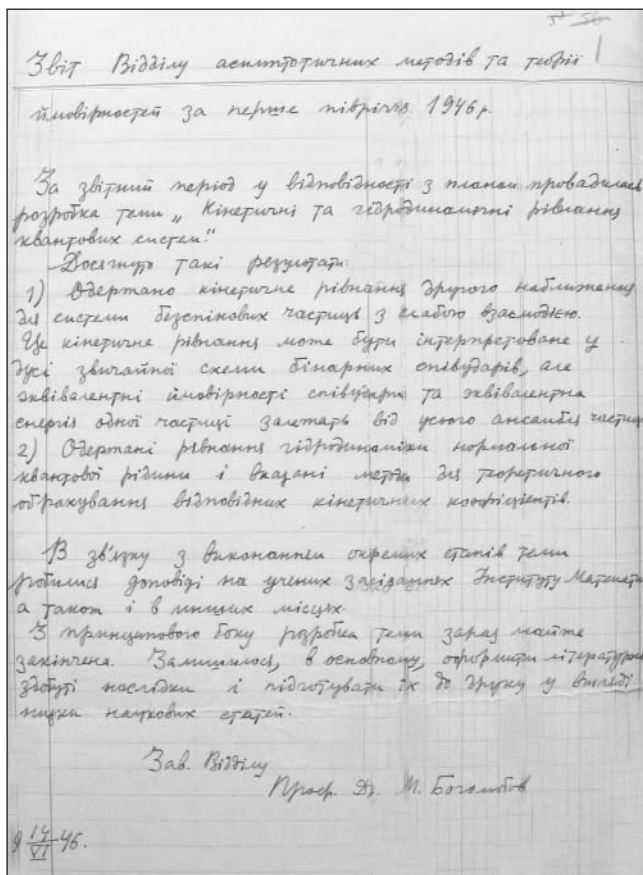 Звіт Відділу асимптотичних методів та теорії
ймовірностей за перше півріччя 1946 р.
За звітний період у відповідності з планом провадилась
розробка теми „Кінетичні та гідродинамічні рівняння
квантових систем."
Досягнуто такі результати:
1) Одержано кінетичне рівняння другого наближення
для системи безспінових частиць з слабою взаємодією.
Це кінетичне рівняння може бути інтерпретоване у
дусі звичайної схеми бінарних співударів, але
эквівалентні ймовірності співудару та эквівалентна
енергія одної частиці залежать від усього ансамбля частиц
2) Одержані рівняння гідродинаміки нормальної
квантової рідини і вказані методи для теоретичного
обрахування відповідних кінетичних коефіцієнтів.
В зв'язку з виконанням окремих етапів теми
робилися доповіді на учених засіданнях Інституту Математи
а також і в инших місцях.
З принципового боку розробка теми зараз майже
закінчена. Залишилося, в основному, оформити літературно
здобуті наслідки і підготувати їх до друку у вигляді
низки наукових статей.
Зав. Відділу
Проф. Др. М. Боголюбов
14
VI 46.